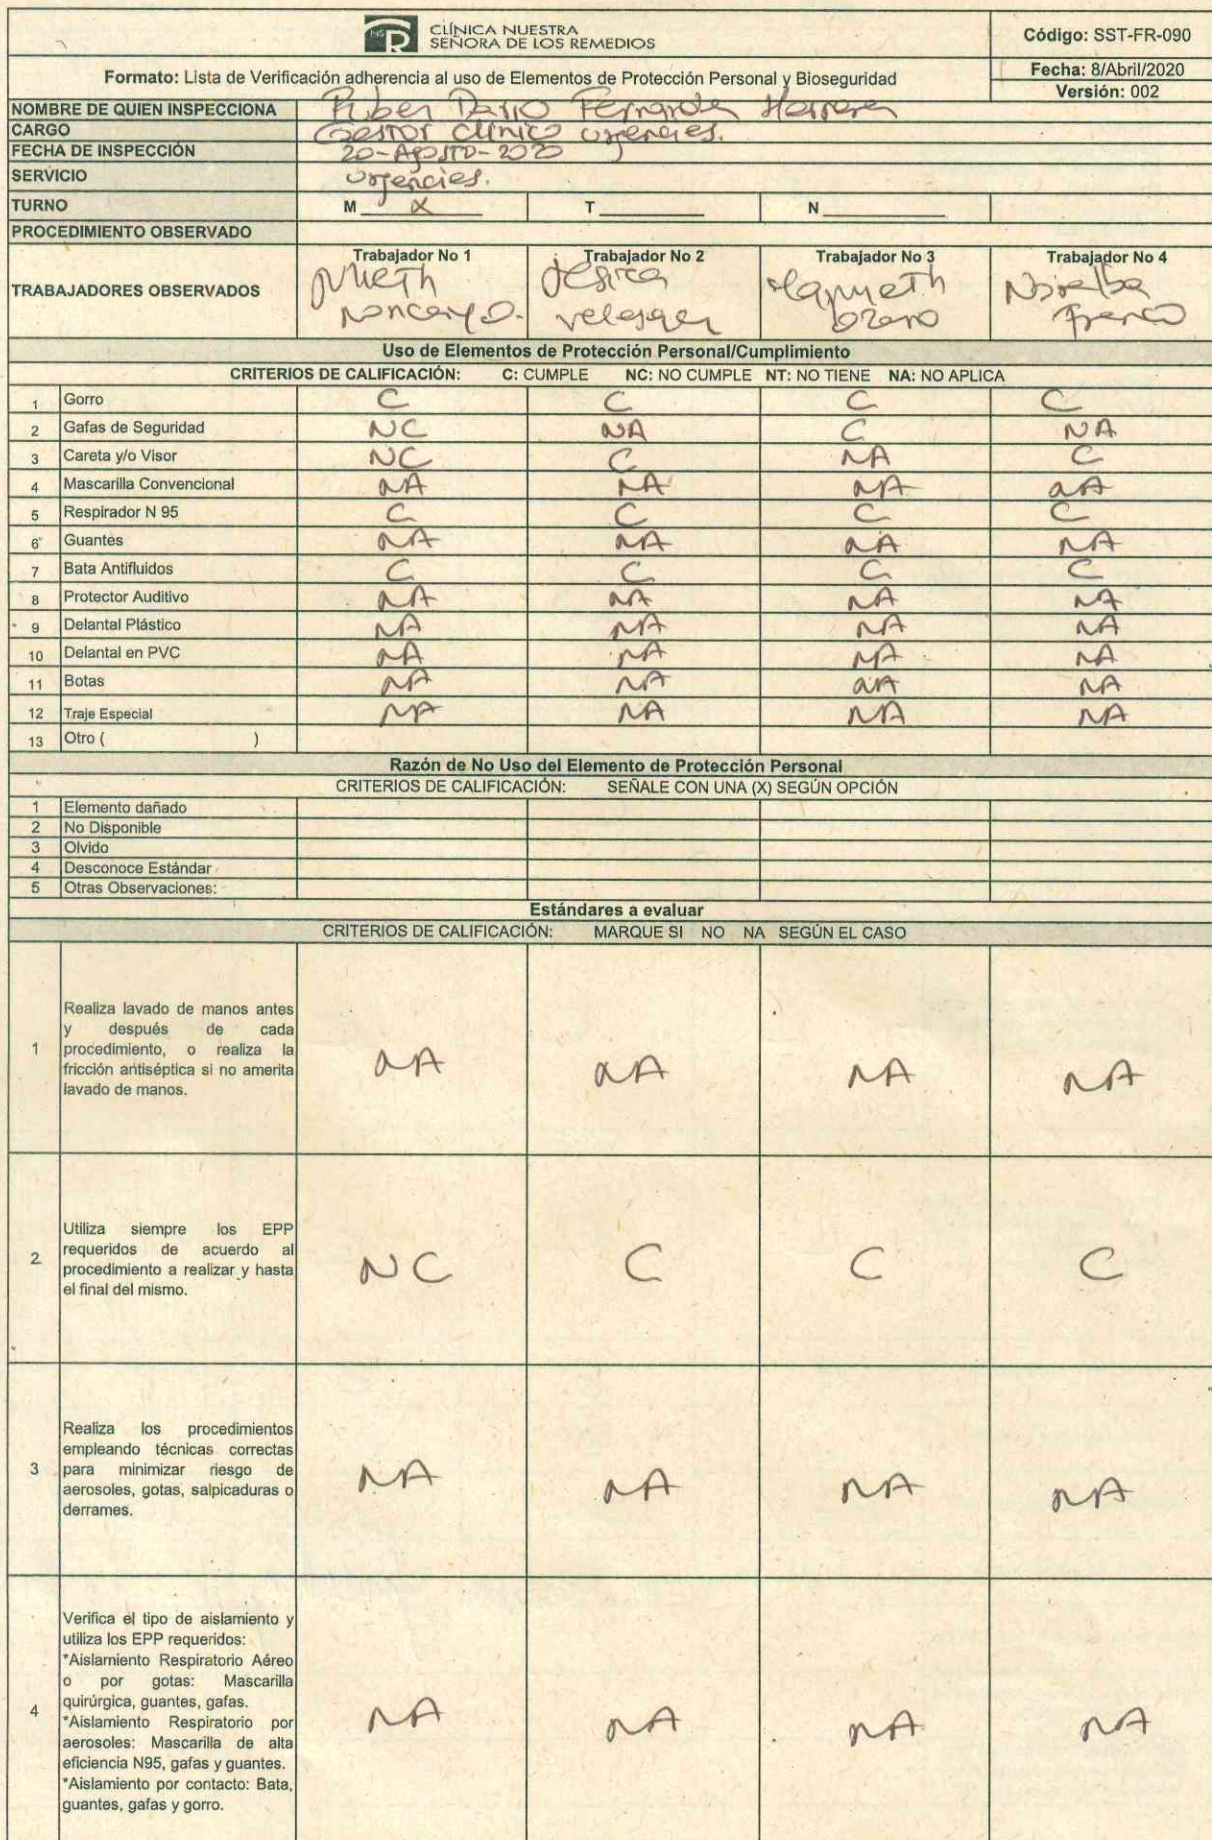 CLÍNICA NUESTRA
SEÑORA DE LOS REMEDIOS
Código: SST-FR-090
Formato: Lista de Verificación adherencia al uso de Elementos de Protección Personal y Bioseguridad
Fecha: 8/Abril/2020
Versión: 002
NOMBRE DE QUIEN INSPECCIONA Dario
CARGO Gestor Clínico urgencies.
FECHA DE INSPECCIÓN 20-Agosto-2020
SERVICIO urgencies.
TURNO M X T N
PROCEDIMIENTO OBSERVADO
TRABAJADORES OBSERVADOS
Trabajador No 1 Trabajador No 2 Trabajador No 3 Trabajador No 4
Uso de Elementos de Protección Personal/Cumplimiento
CRITERIOS DE CALIFICACIÓN: C: CUMPLE NC: NO CUMPLE NT: NO TIENE NA: NO APLICA
1 Gorro C C C C
2 Gafas de Seguridad NC NA C NA
3 Careta y/o Visor NC C NA C
4 Mascarilla Convencional NA NA NA NA
5 Respirador N 95 C C C C
6 Guantes NA NA NA NA
7 Bata Antifluidos C C C C
8 Protector Auditivo NA NA NA NA
9 Delantal Plástico NA NA NA NA
10 Delantal en PVC NA NA NA NA
11 Botas NA NA NA NA
12 Traje Especial NA NA NA NA
13 Otro ( )
Razón de No Uso del Elemento de Protección Personal
CRITERIOS DE CALIFICACIÓN: SEÑALE CON UNA (X) SEGÚN OPCIÓN
1 Elemento dañado
2 No Disponible
3 Olvido
4 Desconoce Estándar
5 Otras Observaciones:
Estándares a evaluar
CRITERIOS DE CALIFICACIÓN: MARQUE SI NO NA SEGÚN EL CASO
1
Realiza lavado de manos antes
y después de cada
procedimiento, o realiza la
fricción antiséptica si no amerita
lavado de manos.
NA NA NA NA
2
Utiliza siempre los EPP
requeridos de acuerdo al
procedimiento a realizar y hasta
el final del mismo.
NC C C C
3
Realiza los procedimientos
empleando técnicas correctas
para minimizar riesgo de
aerosoles, gotas, salpicaduras o
derrames.
NA NA NA NA
4
Verifica el tipo de aislamiento y
utiliza los EPP requeridos:
*Aislamiento Respiratorio Aéreo
o por gotas: Mascarilla
quirúrgica, guantes, gafas.
*Aislamiento Respiratorio por
aerosoles: Mascarilla de alta
eficiencia N95, gafas y guantes.
*Aislamiento por contacto: Bata,
guantes, gafas y gorro.
NA NA NA NA